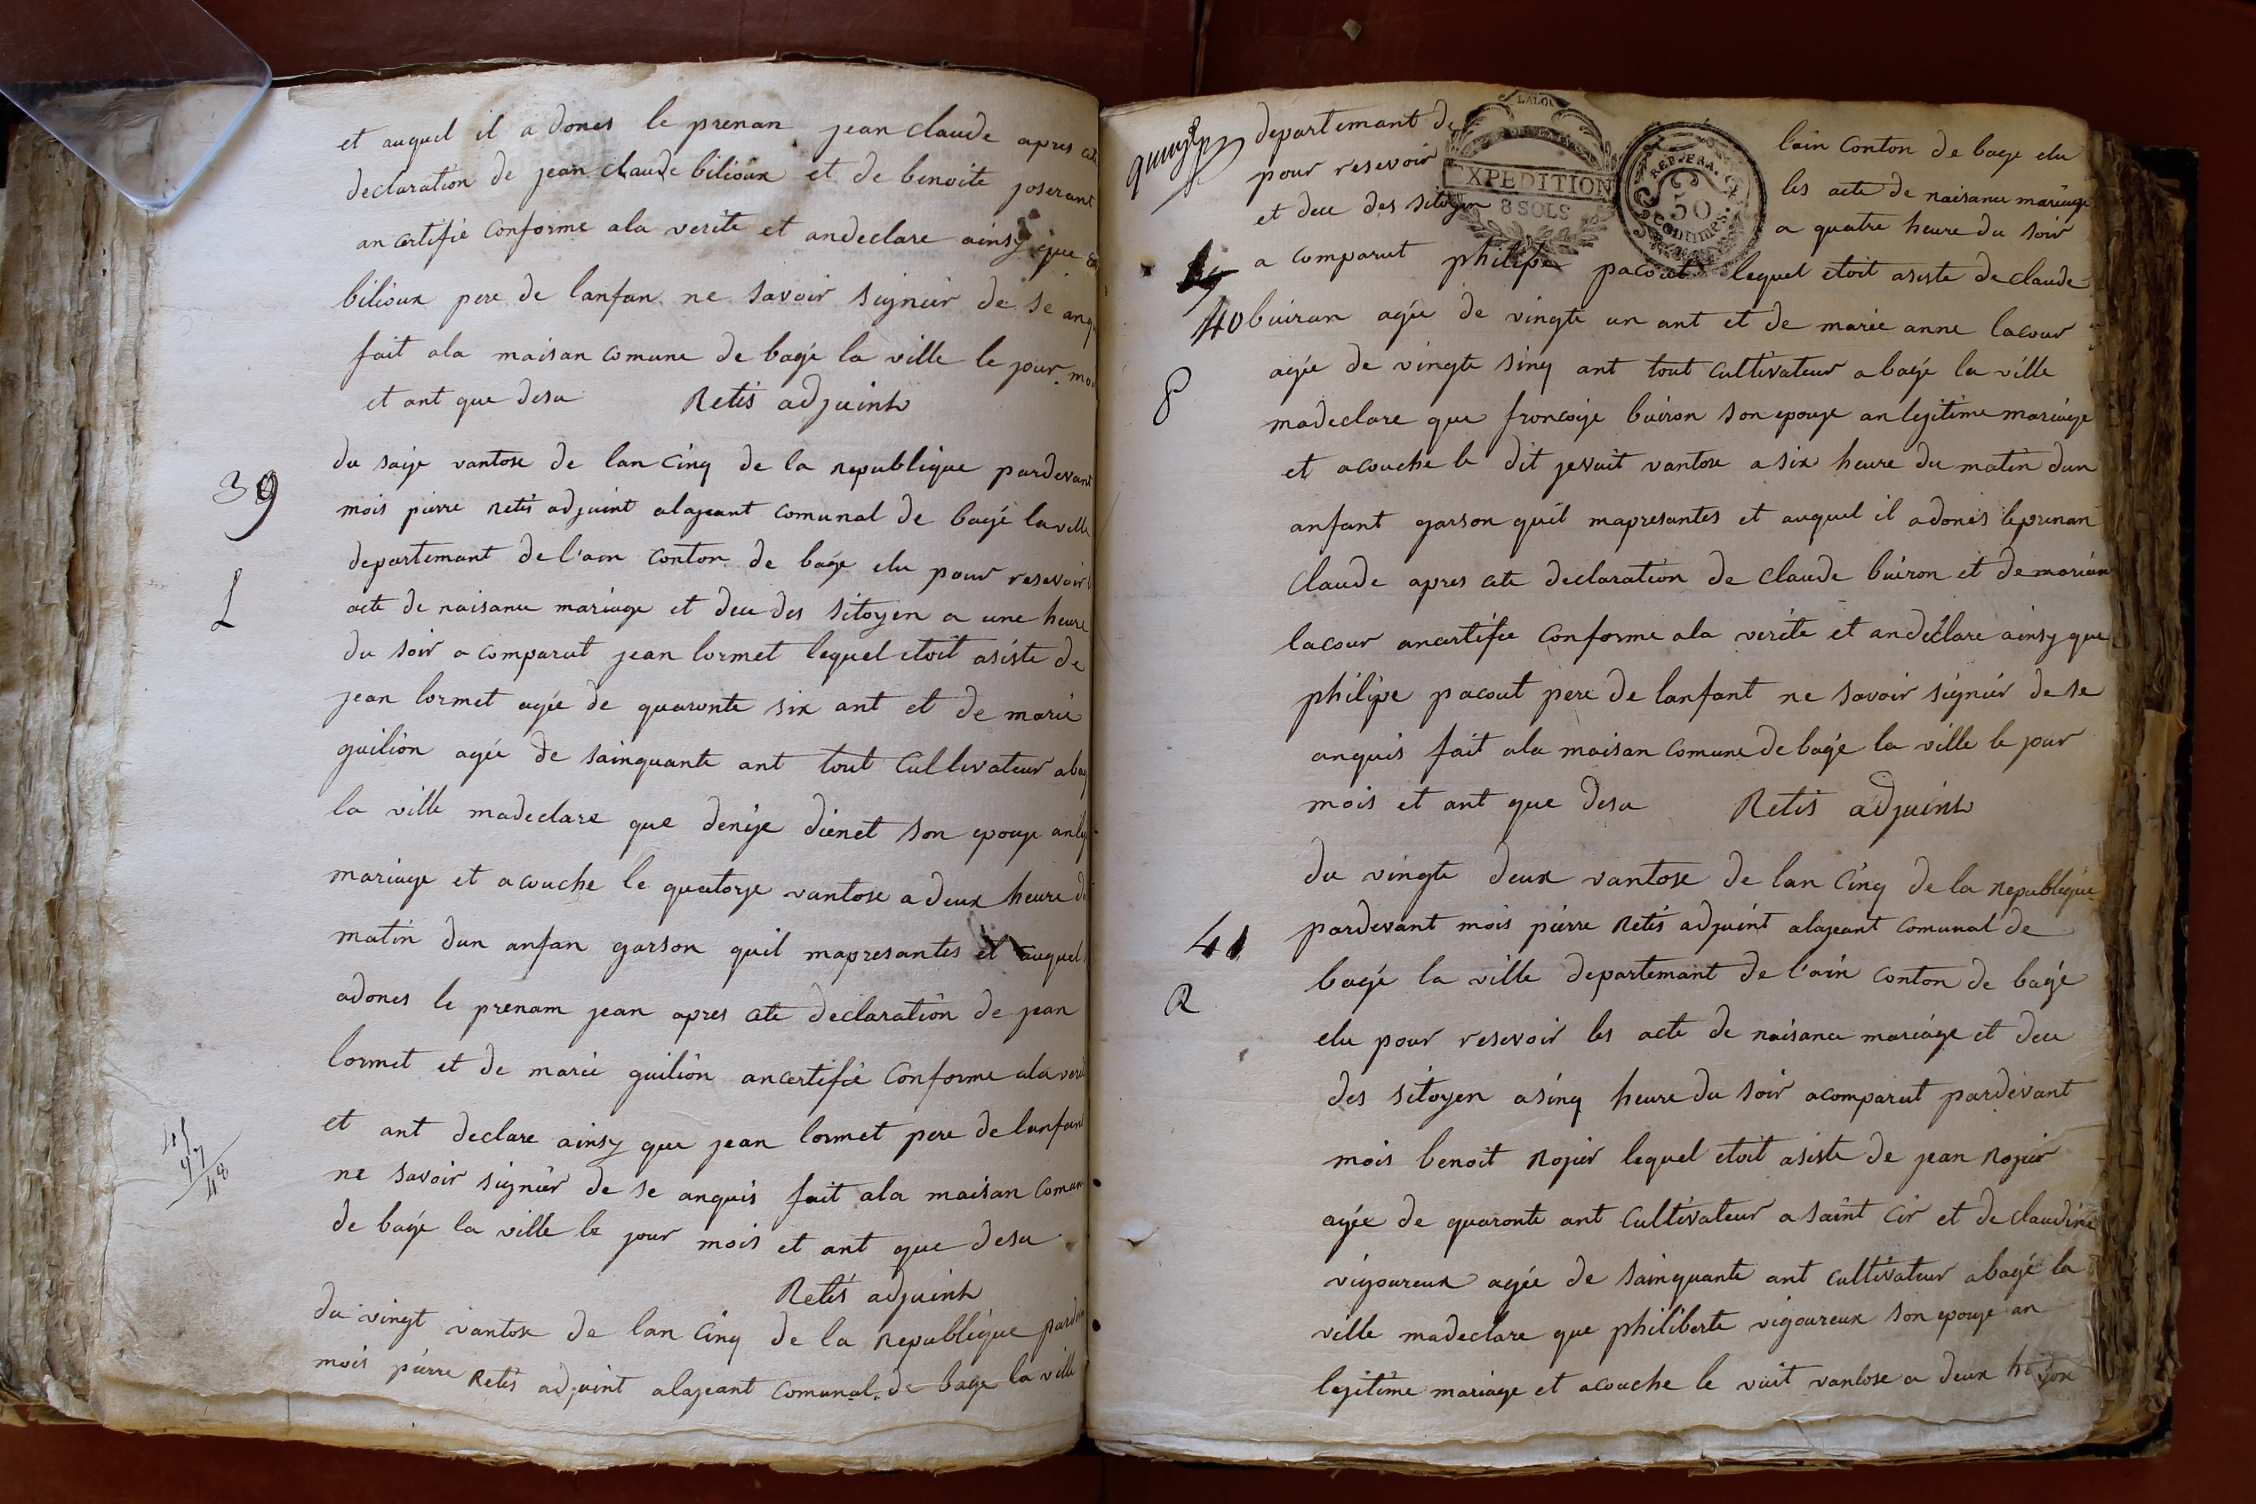 et auquel il a dones le prenan jean claude apres cete
declaration de jean claude bilioux et de benoite joserant
an certifie conforme ala verite et andeclare ainsy que
bilioux pere de lanfan ne savoir signier de se anq
fait ala maisan comune de bagé la ville le jour moi
et ant que desu Retis adjuint
39
du saije vantose de lan cinq de la republique pardevant
mois pierre Retis adjuint alajeant comunal de bagé la ville
departemant de l'ain conton de bagé elu pour resevoir
L
acte de naisance mariage et dece des sitoyen a une heure
du soir a comparut jean lormet lequel etoit asiste de
jean lormet agée de quaronte six ant et de marie
guilion agée de sainquante ant tout cultivateur abag
la ville madeclare que denije dienet son epouje anleg
mariage et acouche le quatorje vantose a deux heure du
matin dun anfan garson quil mapresantes et auquel
adones le prenam jean apres cete declaration de jean
lormet et de marie guilion ancertifie conforme ala verit
et ant declare ainsy que jean lormet pere de lanfant
ne savoir signier de se anquis fait ala maisan comun
de bagé la ville le jour mois et ant que desu
Retis adjuint
du vingt vantose de lan cinq de la republique pardev
mois pierre Retis adjuint alajeant comunal de bage la ville
47
48
departemant de lain conton de bage elu
pour resevoir les acte de naisance mariage
et dece des sitoyen a quatre heure du soir
LA LOI
EXPEDITION
8 SOLS
REP. FRA.
50
Centimes.
a comparut philipe pacout lequel etoit asiste de claude
40
buiron agée de vingte un ant et de marie anne lacour
agée de vingte sinq ant tout cultivateur a bagé la ville
P
madeclare que froncoije buiron son epouje anlegitime mariage
et acouche le dit jevuit vantose a six heure du matin dun
anfant garson quil mapresantes et auquel il adones leprenan
claude apres cete declaration de claude buiron et de marian
lacour ancertifie conforme ala verite et andeclare ainsy que
philipe pacout pere de lanfant ne savoir signier de se
anquis fait ala maisan comune de bagé la ville le jour
mois et ant que desu Retis adjuint
du vingte deux vantose de lan cinq de la republique
41
pardevant mois pierre Retis adjuint alajeant comunal de
bagé la ville departemant de l'ain conton de bagé
R
elu pour resevoir les acte de naisance mariage et dece
des sitoyen asinq heure du soir acomparut pardevant
mois benoit Rojier lequel etoit asiste de jean Rojier
agée de quaronte ant cultivateur a saint cir et de claudine
vigoureux agée de sainquante ant cultivateur abagé la
ville madeclare que philiberte vigoureux son epouje an
legitime mariage et acouche le vuit vantose a deux